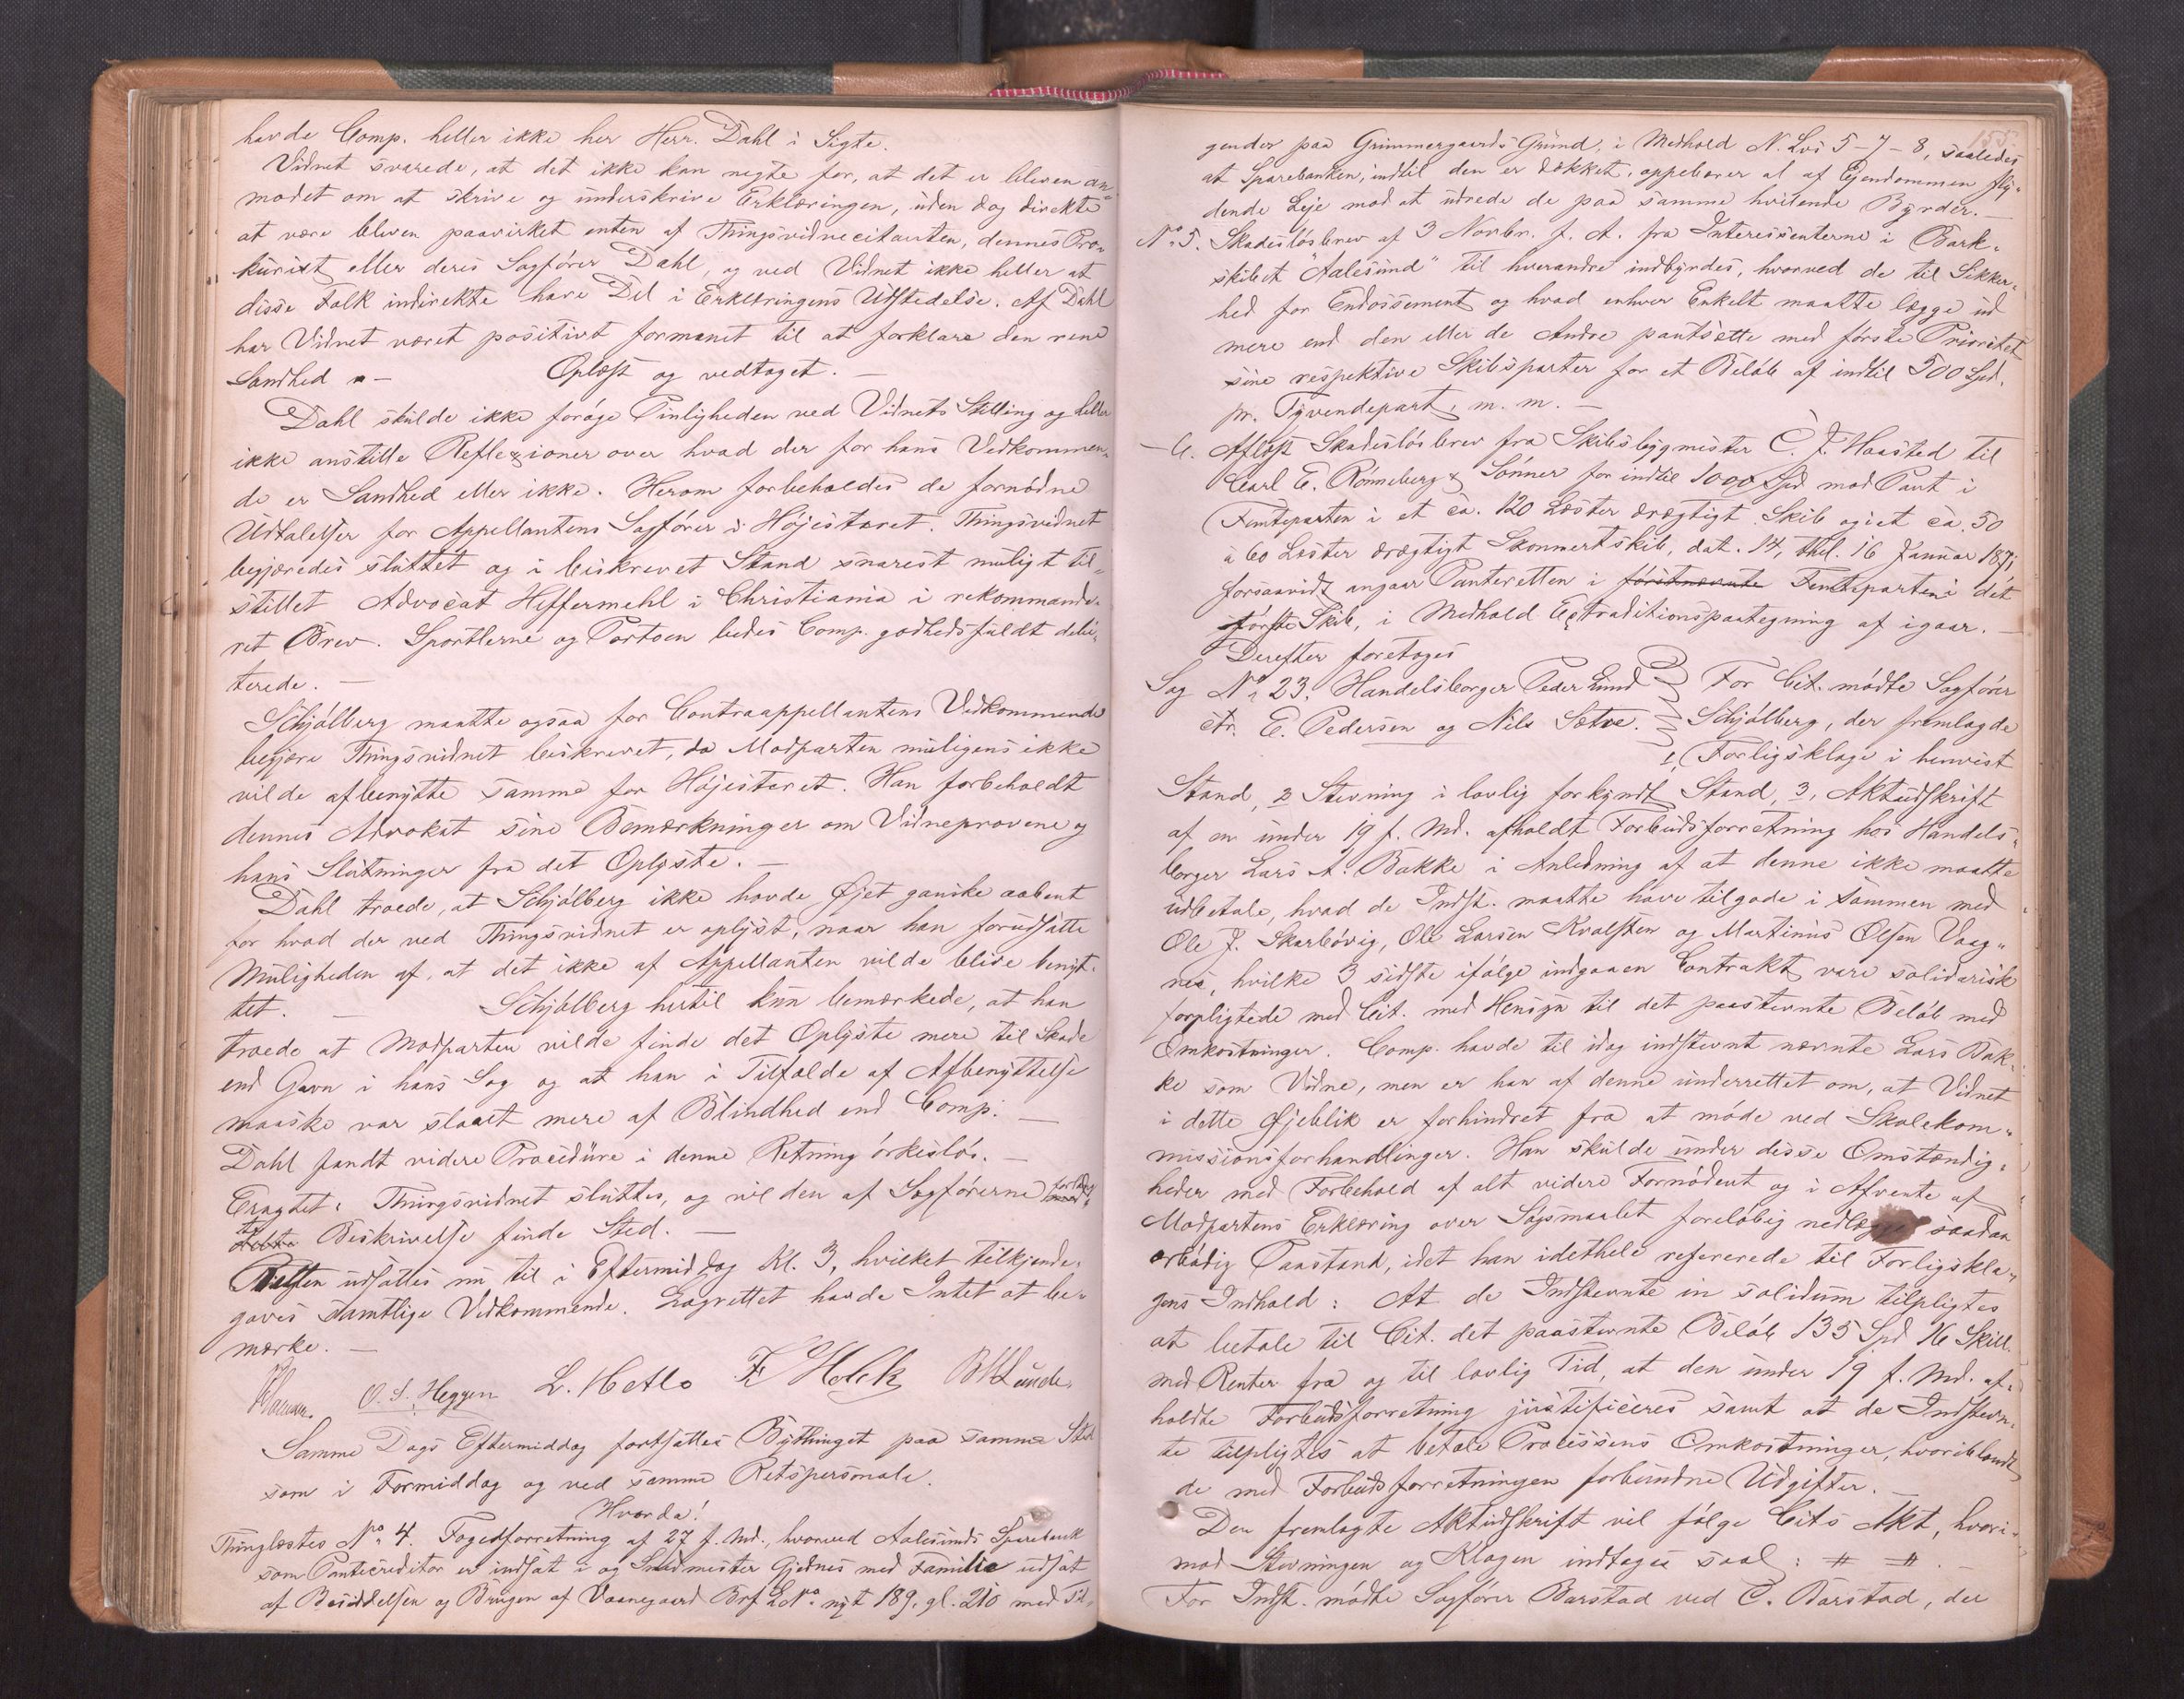 havde Comp. heller ikke her Herr. Dahl i Sigte.
Vidnet svarede, at det ikke kan negte for, at det er bleven an-
modet om at skrive og underskrive Erklæringen, uden dog direkte
at være bleven paavirket enten af Thingsvidnecitanten, dennes Pro-
kurist eller deres Sagfører Dahl, og ved Vidnet ikke heller at
disse Folk indirekte have Del i Erklæringens Udstedelse. Af Dahl
har Vidnet været positivt formanet til at forklare den rene
Sandhed. — Oplæst og vedtaget. —
Dahl skulde ikke forøge Pinligheden ved Vidnets Stilling og heller
ikke anstille Reflexioner over hvad der for hans Vedkommen-
de er Sandhed eller ikke. Herom forbeholdes de fornødne
Udtalelser for Appellantens Sagfører i Højesteret. Thingsvidnet
begjæredes sluttet og i beskrevet Stand snarest muligt til-
stillet Advocat Heffermehl i Christiania i rekommande-
ret Brev. Sportlerne og Portoen bedes Comp. godhedsfuldt debi-
terede. —
Schjølberg maatte ogsaa for Contraappellantens Vedkommende
begjære Thingsvidnet beskrevet, da Modparten muligens ikke
vilde afbenytte samme for Højesteret. Han forbeholdt
dennes Advokat sine Bemærkninger om Vidneprovene og
hans Slutninger fra det Oplyste. —
Dahl troede, at Schjølberg ikke havde Øjet ganske aabent
for hvad der ved Thingsvidnet er oplyst, naar han forudsatte
Muligheden af, at det ikke af Appellanten vilde blive benyt-
tet. — Schjølberg hertil kun bemærkede, at han
troede at Modparten vilde finde det Oplyste mere til Skade
end Gavn i hans Sag og at han i Tilfælde af Afbenyttelse
maaske var slaaet mere af Blindhed end Comp. —
Dahl fandt videre Procedure i denne Retning ørkesløs. —
Eragtet: Thingsvidnet sluttes, og vil den af Sagførerne forlang-
te Beskrivelse finde Sted. —
Retten udsattes nu til i Eftermiddag Kl. 3, hvilket tilkjende-
gaves samtlige Vedkommende. Lagrettet havde Intet at be-
mærke. —
O. S. Heggen L. Hetlo F. Holck
Samme Dags Eftermiddag fortsattes Bythinget paa samme Sted
som i Formiddag og ved samme Retspersonale.
Hvorda!
Thinglæstes No. 4. Fogedforretning af 27 f. Md., hvorved Aalesunds Sparebank
som Pantecreditor er indsat i og Smedmester Gjednes med Familie udsat
af Besiddelsen og Brugen af Vaanegaard Brf. L No. nyt 189, gl. 210 med Til-
155
gender paa Grimmergaards Grund, i Medhold N. Lov 5-7-8, saaledes
at Sparebanken, indtil den er dækket, oppebærer al af Ejendommen fly-
dende Leje mod at udrede de paa samme hvilende Byrder. —
No. 5. Skadesløsbrev af 3 Novbr. f. A. fra Interessenterne i Bark-
skibet "Aalesund" til hverandre indbyrdes, hvorved de til Sikker-
hed for Endossement og hvad enhver Enkelt maatte lægge ud
mere end den eller de Andre pantsætte med første Prioritet
sine respektive Skibsparter for et Beløb af indtil 500 Spd.
pr. Tyvendepart, m. m. —
Aflæst Skadesløsbrev fra Skibsbygmester C. J. Haasted til
Carl E. Rønneberg & Sønner for indtil 1000 Spd mod Pant i
Femteparten i et ca. 120 Læster drægtigt Skib og i et ca. 50
a 60 Læster drægtigt Skonnertskib, dat. 14, thl. 16 Januar 187
forsaavidt angaar Panteretten i førstnævnte Femteparten i det
første Skib, i Medhold Extraditionspaategning af igaar. —
Derefter foretoges
Sag No. 23. Handelsborger Peder Lund
ctr. E. Pedersen og Nils Sætre.
For Cit. mødte Sagfører
Schjølberg, der fremlagde
1, Forligsklage i henvist
Stand, 2 Stevning i lovlig forkyndt Stand, 3, Aktudskrift
af en under 19 f. Md. afholdt Forbudsforretning hos Handels-
borger Lars A. Bakke i Anledning af at denne ikke maatte
udbetale, hvad de Indst. maatte have tilgode i sammen med
Ole J. Skarbøvig, Ole Larsen Kvalsten og Martinus Olsen Vaag-
nes, hvilke 3 sidste ifølge indgaaen Contrakt vare solidarisk
forpligtede med Cit. med Hensyn til det paastevnte Beløb med
Omkostninger. Comp. havde til idag indstevnt nævnte Lars Bak-
ke som Vidne, men er han af denne underrettet om, at Vidnet
i dette Øjeblik er forhindret fra at møde ved Skolekom-
missionsforhandlinger. Han skulde under disse Omstændig-
heder med Forbehold af alt videre Fornødent og i Afvente af
Modpartens Erklæring over Søgsmaalet foreløbig nedlægge saadan
ærbødig Paastand, idet han idethele refererede til Forligskla-
gens Indhold: At de Indstevnte in solidum tilpligtes
at betale til Cit. det paastevnte Beløb 135 Spd 16 Skill.
med Renter fra og til lovlig Tid, at den under 19 f. Md. af-
holdte Forbudsforretning justificeres samt at de Indstevn-
te tilpligtes at betale Processens Omkostninger, hvoriblandt
de med Forbudsforretningen forbundne Udgifter. —
Den fremlagte Aktudskrift vil følge Cits Akt, hvori-
mod Stevningen og Klagen indtages saal: # #.
For Indst. mødte Sagfører Barstad ved C. Barstad, der